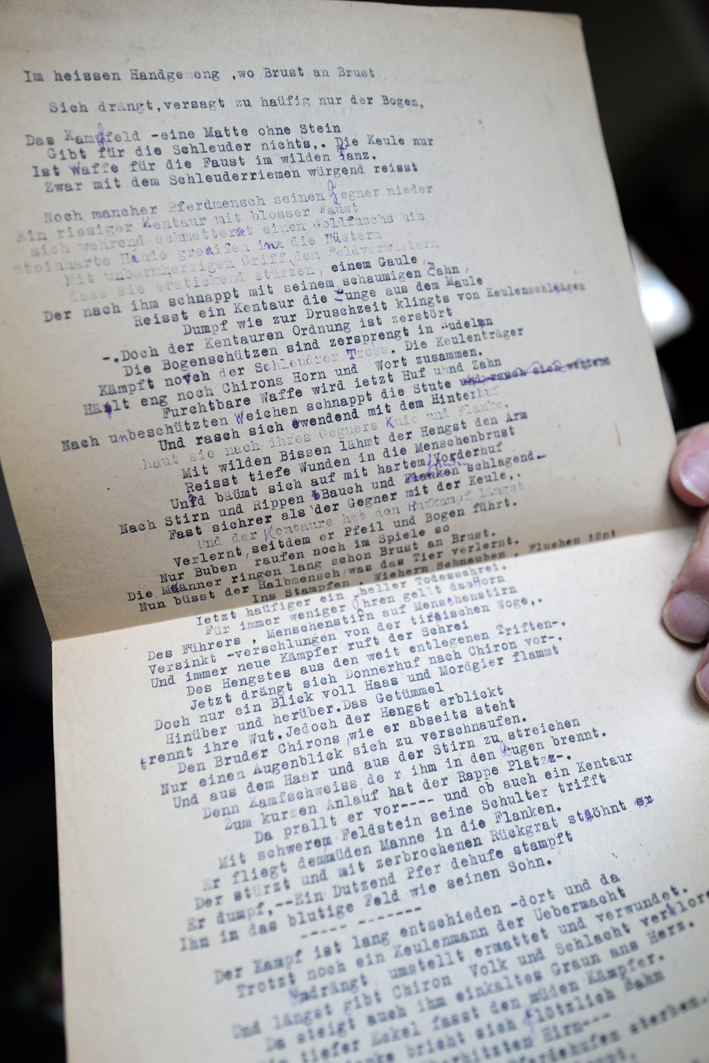 Im heissen Handgemeng ,wo Brust an Brust
Sich drängt,versagt zu haüfig nur der Bogen.
Das Kampffeld -eine Matte ohne Stein
Gibt für die Schleuder nichts,. Die Keule nur
Ist Waffe für die Faust im wilden Tanz.
Zwar mit dem Schleuderriemen würgend reisst
Noch mancher Pferdmensch seinen Gegner nieder
Ein riesiger Kentaur mit blosser Faust
sich wehrend schmettert einen Goldfuchs hin
steinharte Hände greifen in die Nüstern
Mit unbarmherzigen Griff den Feldverwüstern
dass sie erstickend stürzen, einem Gaule,
Der nach ihm schnappt mit seinem schaumigen Zahn,
Reisst ein Kentaur die Zunge aus dem Maule
Dumpf wie zur Druschzeit klingts von Keulenschlägen
-.Doch der Kentauren Ordnung ist zerstört
Die Bogenschützen sind zersprengt in Rudeln
Kämpft noch der Schleudrer Tross. Die Keulenträger
Hält eng noch Chirons Horn und Wort zusammen.
Furchtbare Waffe wird ietzt Huf und Zahn
Nach unbeschützten Weichen schnappt die Stute und rasch sich wehrend
Und rasch sich wendend mit dem Hinterhuf
haut sie nach ihres Gegners Knie und Flanke.
Mit wilden Bissen lähmt der Hengst den Arm
Reisst tiefe Wunden in die Menschenbrust
Und bäumt sich auf mit hartem Vorderhuf
Nach Stirn und Rippen Bauch und Flanken schlagend-
Fast sichrer als der Gegner mit der Keule,.
Und der Kentaure hat den Hufkampf längst
Verlernt seitdem er Pfeil und Bogen führt.
Nur Buben raufen noch im Spiele so
Die Männer ringen lang schon Brust an Brust.
Nun büsst der Halbmensch was das Tier verlernt.
Ins Stampfen , Wiehern Schnauben , Fluchen tönt
Ietzt haüfiger ein heller Todesschrei.
Für immer weniger Ohren gellt das Horn
Des Führers , Menschenstirn auf Menschenstirn
Versinkt -verschlungen von der tierischen Woge,.
Und immer neue Kämpfer ruft der Schrei
Des Hengstes aus den weit entlegenen Triften-.
Jetzt drängt sich Donnerhuf nach Chiron vor-.
Doch nur ein Blick voll Haas und Mordgier flammt
Hinüber und herüber.Das Getümmel
trennt ihre Wut.Jedoch der Hengst erblickt
Den Bruder Chirons wie er abseits steht
Nur einen Augenblick sich zu verschnaufen.
Und aus dem Haar und aus der Stirn zu streichen
Denn Kamfschweiss de r ihm in den Augen brennt.
Zum kurzen Anlauf hat der Rappe Platz-.
Da prallt er vor---- und ob auch ein Kentaur
Mit schwerem Feldstein seine Schulter trifft
Er fliegt dem müden Manne in die Flanken.
Der stürzt und mit zerbrochenen Rückgrat stöhnt
Er dumpf,--Ein Dutzend Pfer dehufe stampft
Ihn in das blutige Feld wie seinen Sohn.
----- -------
Der Kampf ist lang entschieden -dort und da
Trotzt noch ein Keulenmann der Uebermacht
Umdrängt umstellt ermattet und verwundet.
Und längst gibt Chiron Volk und Schlacht verloren
Da steigt auch ihm einkaltes Graun ans Herz.
tiefer Ekel fasst den müden Kämpfer.
bricht sich plötzlich Bahn
Hirn---
sterben.